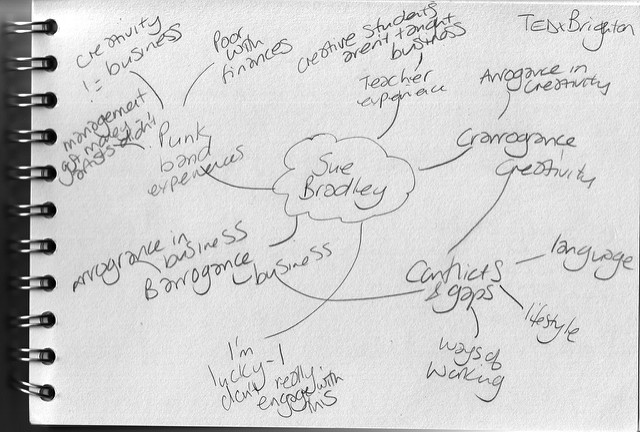 TEDxBrighton
Sue
Bradley
creativity
!= business
Poor
with
finances
management
got money
artists didn't
Punk
band
experiences
creative students
aren't taught
business
Teacher
experience
Arrogance in
creativity
Crarrogance
creativity
Conflicts
& gaps
language
lifestyle
ways of
working
Arrogrance in
business
Barrogance
business
I'm
lucky - I
don't really
engage with
this